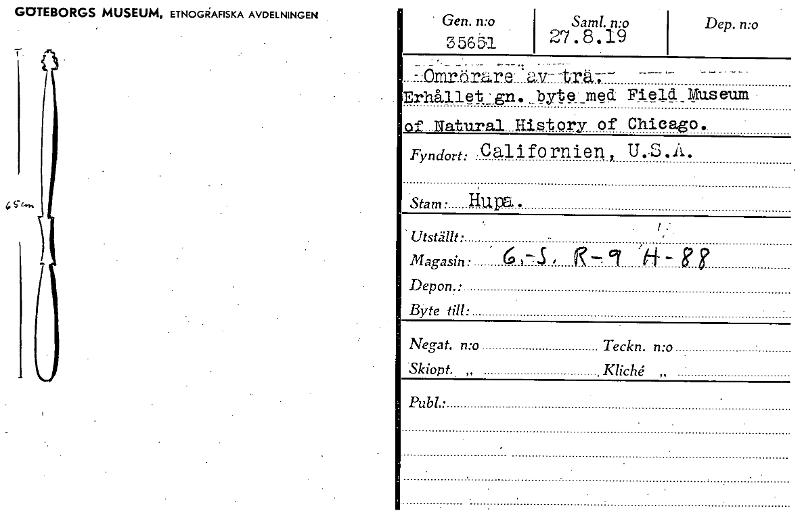 GÖTEBORGS MUSEUM, ETNOGRAFISKA AVDELNINGEN
65cm
Gen. n:o
35651
Saml. n:o
27.8.19
Dep. n:o
Omrörare av trä.
Erhållet gn. byte med Field Museum
of Natural History of Chicago.
Fyndort: Californien, U.S.A.
Stam: Hupa.
Utställt:
Magasin: G.-S. R-9 H-88
Depon.:
Byte till:
Negat. n:o Teckn. n:o
Skiopt. „ Kliché „
Publ.: